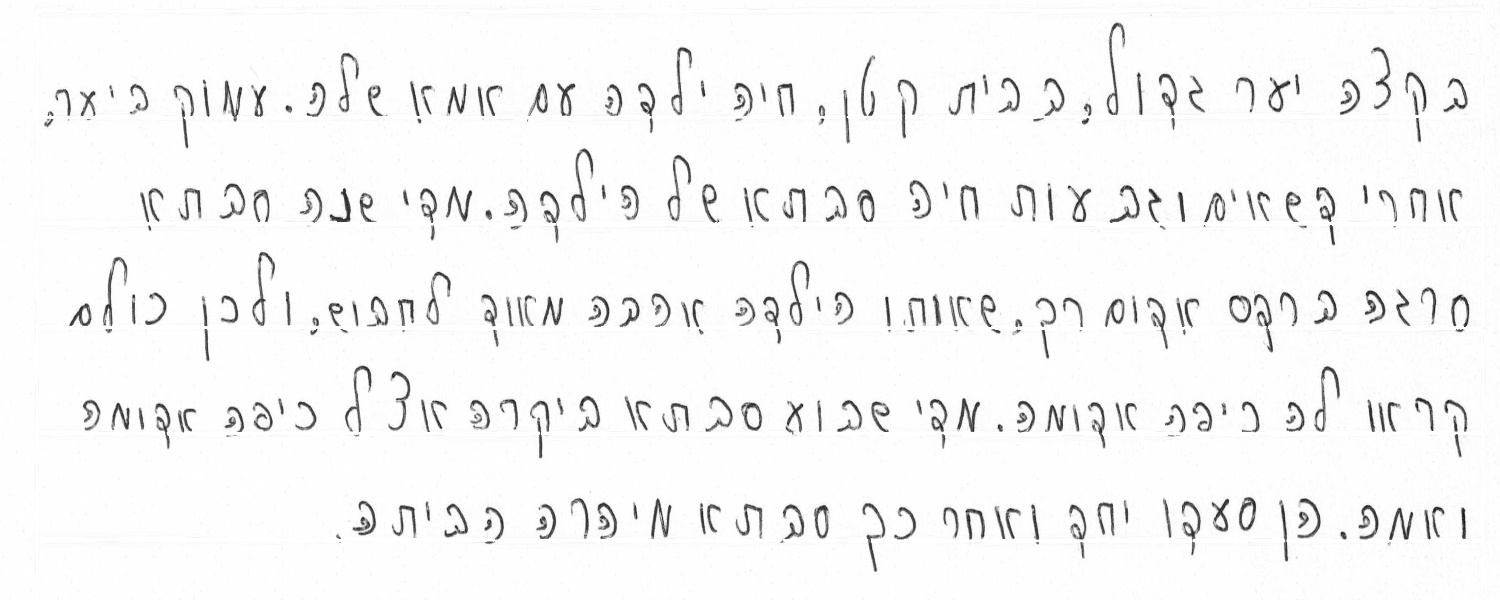 בקצה יער גדול, בבית קטן, חיה ילדה עם אמא שלה. עמוק ביער,
אחרי קשאים וגבעות חיה סבתא של הילדה. מדי שנה סבתא
סרגה ברדס אדום רך, שאותו הילדה אהבה מאוד לחבוש, ולכן כולם
קראו לה כיפה אדומה. מדי שבוע סבתא ביקרה אצל כיפה אדומה
ואמה. הן סעדו יחד ואחר כך סבתא מיהרה הביתה.